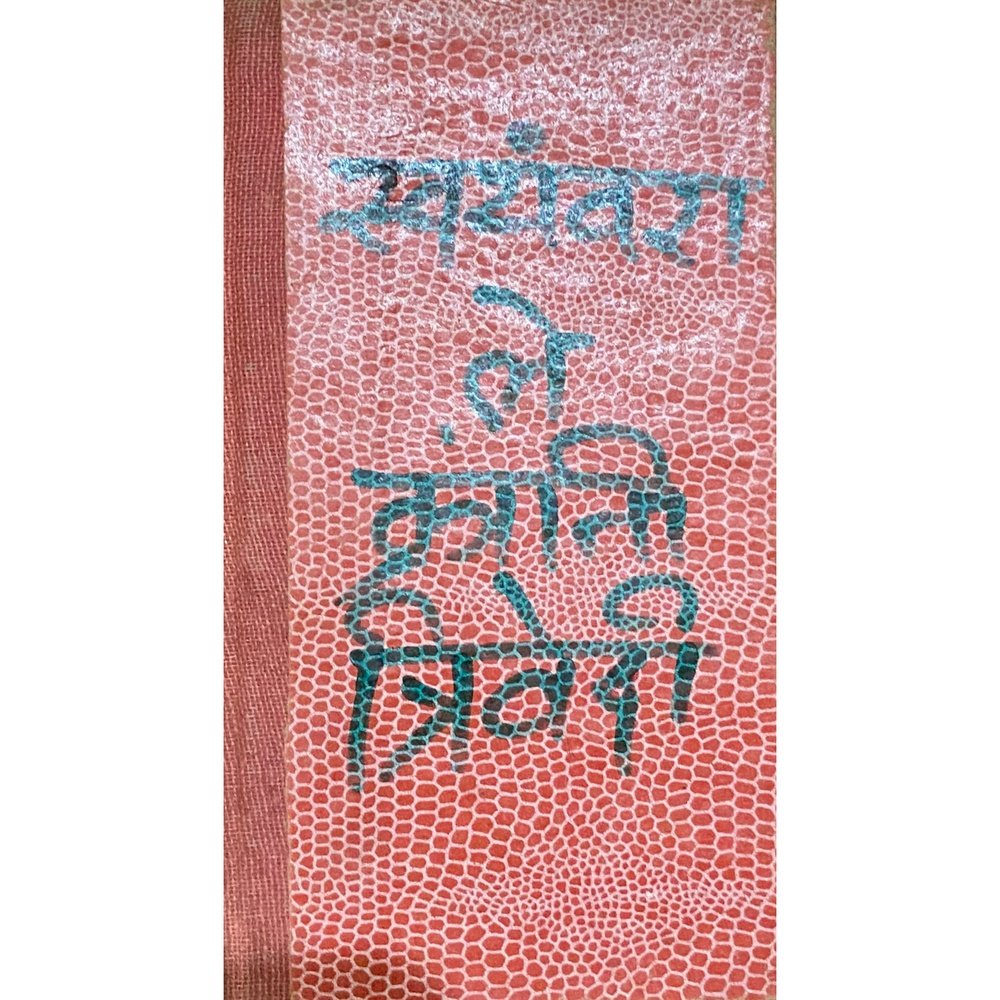 स्वयंवरा
ले.
क्रांति
त्रिवेदी